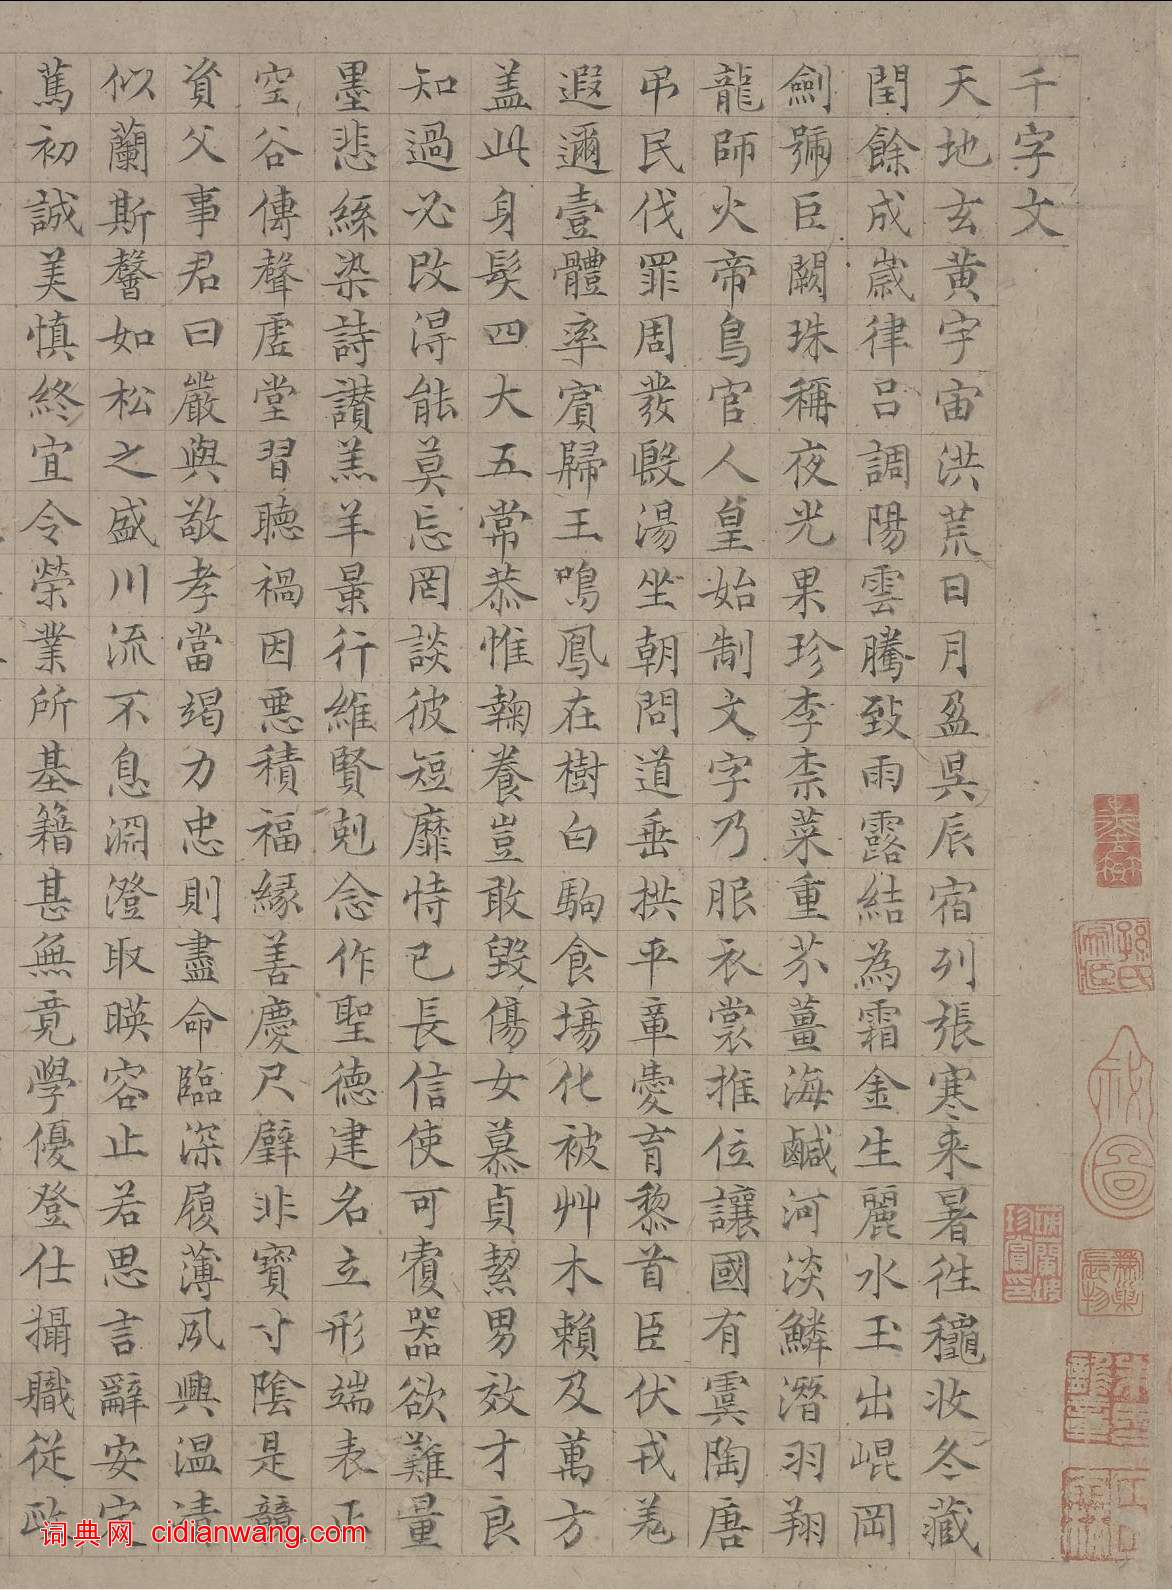 千字文
天地玄黄宇宙洪荒日月盈昃辰宿列張寒来暑往穐收冬藏
閏餘成歲律吕調陽雲騰致雨露結為霜金生麗水玉出崐岡
劍號巨闕珠稱夜光果珍李柰菜重芥薑海鹹河淡鱗潛羽翔
龍師火帝鳥官人皇始制文字乃服衣裳推位讓國有虞陶唐
弔民伐罪周發殷湯坐朝問道垂拱平章愛育黎首臣伏戎羌
遐邇壹體率賓歸王鳴鳳在樹白駒食場化被艸木賴及萬方
盖此身髮四大五常恭惟鞠養豈敢毀傷女慕貞絜男效才良
知過必改得能莫忘罔談彼短靡恃已長信使可覆器欲難量
墨悲絲染詩讃羔羊景行維賢剋念作聖德建名立形端表正
空谷傳聲虛堂習聽禍因惡積福緣善慶尺璧非寶寸陰是競
資父事君曰嚴與敬孝當竭力忠則盡命臨深履薄夙興温凊
似蘭斯馨如松之盛川流不息淵澄取暎容止若思言辭安定
篤初誠美慎終宜令榮業所基籍甚無竟學優登仕攝職從政
词典网 cidianwang.com